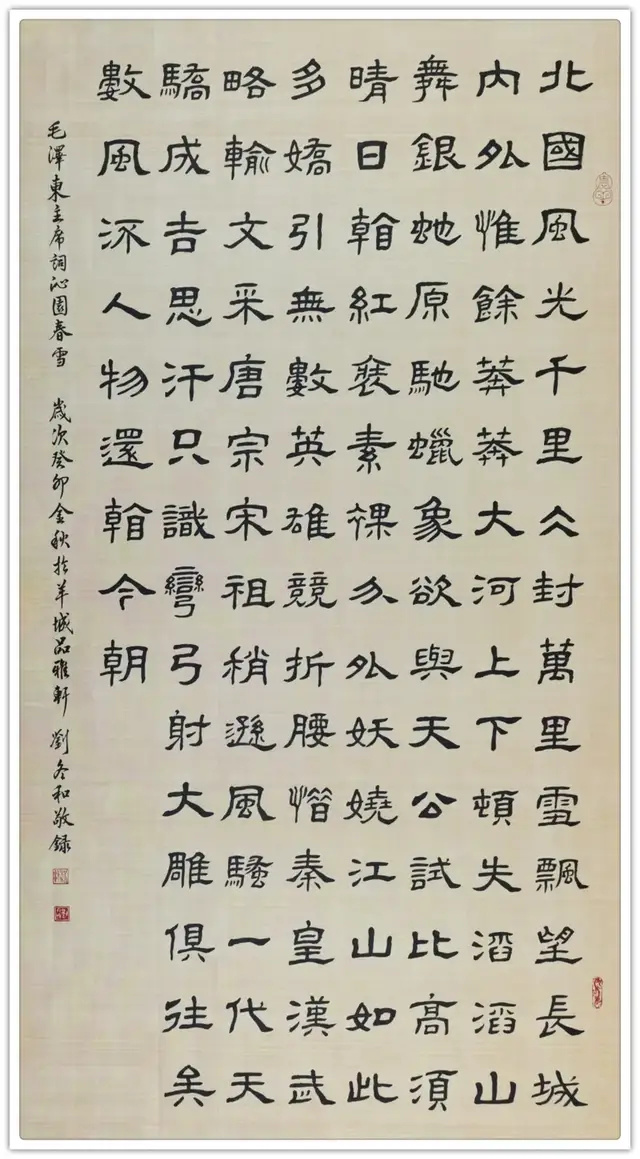 北國風光千里仌封萬里雪飄望長城
內外惟餘莽莽大河上下頓失滔滔山
舞銀虵原馳蠟象欲與天公試比高須
晴日看紅裝素裹分外妖嬈江山如此
多嬌引無數英雄競折腰惜秦皇漢武
略輸文采唐宗宋祖稍遜風騷一代天
驕成吉思汗只識彎弓射大雕俱往矣
數風流人物還看今朝
毛澤東主席詞沁園春雪 歲次癸卯金秋於羊城品雅軒 劉冬和敬錄